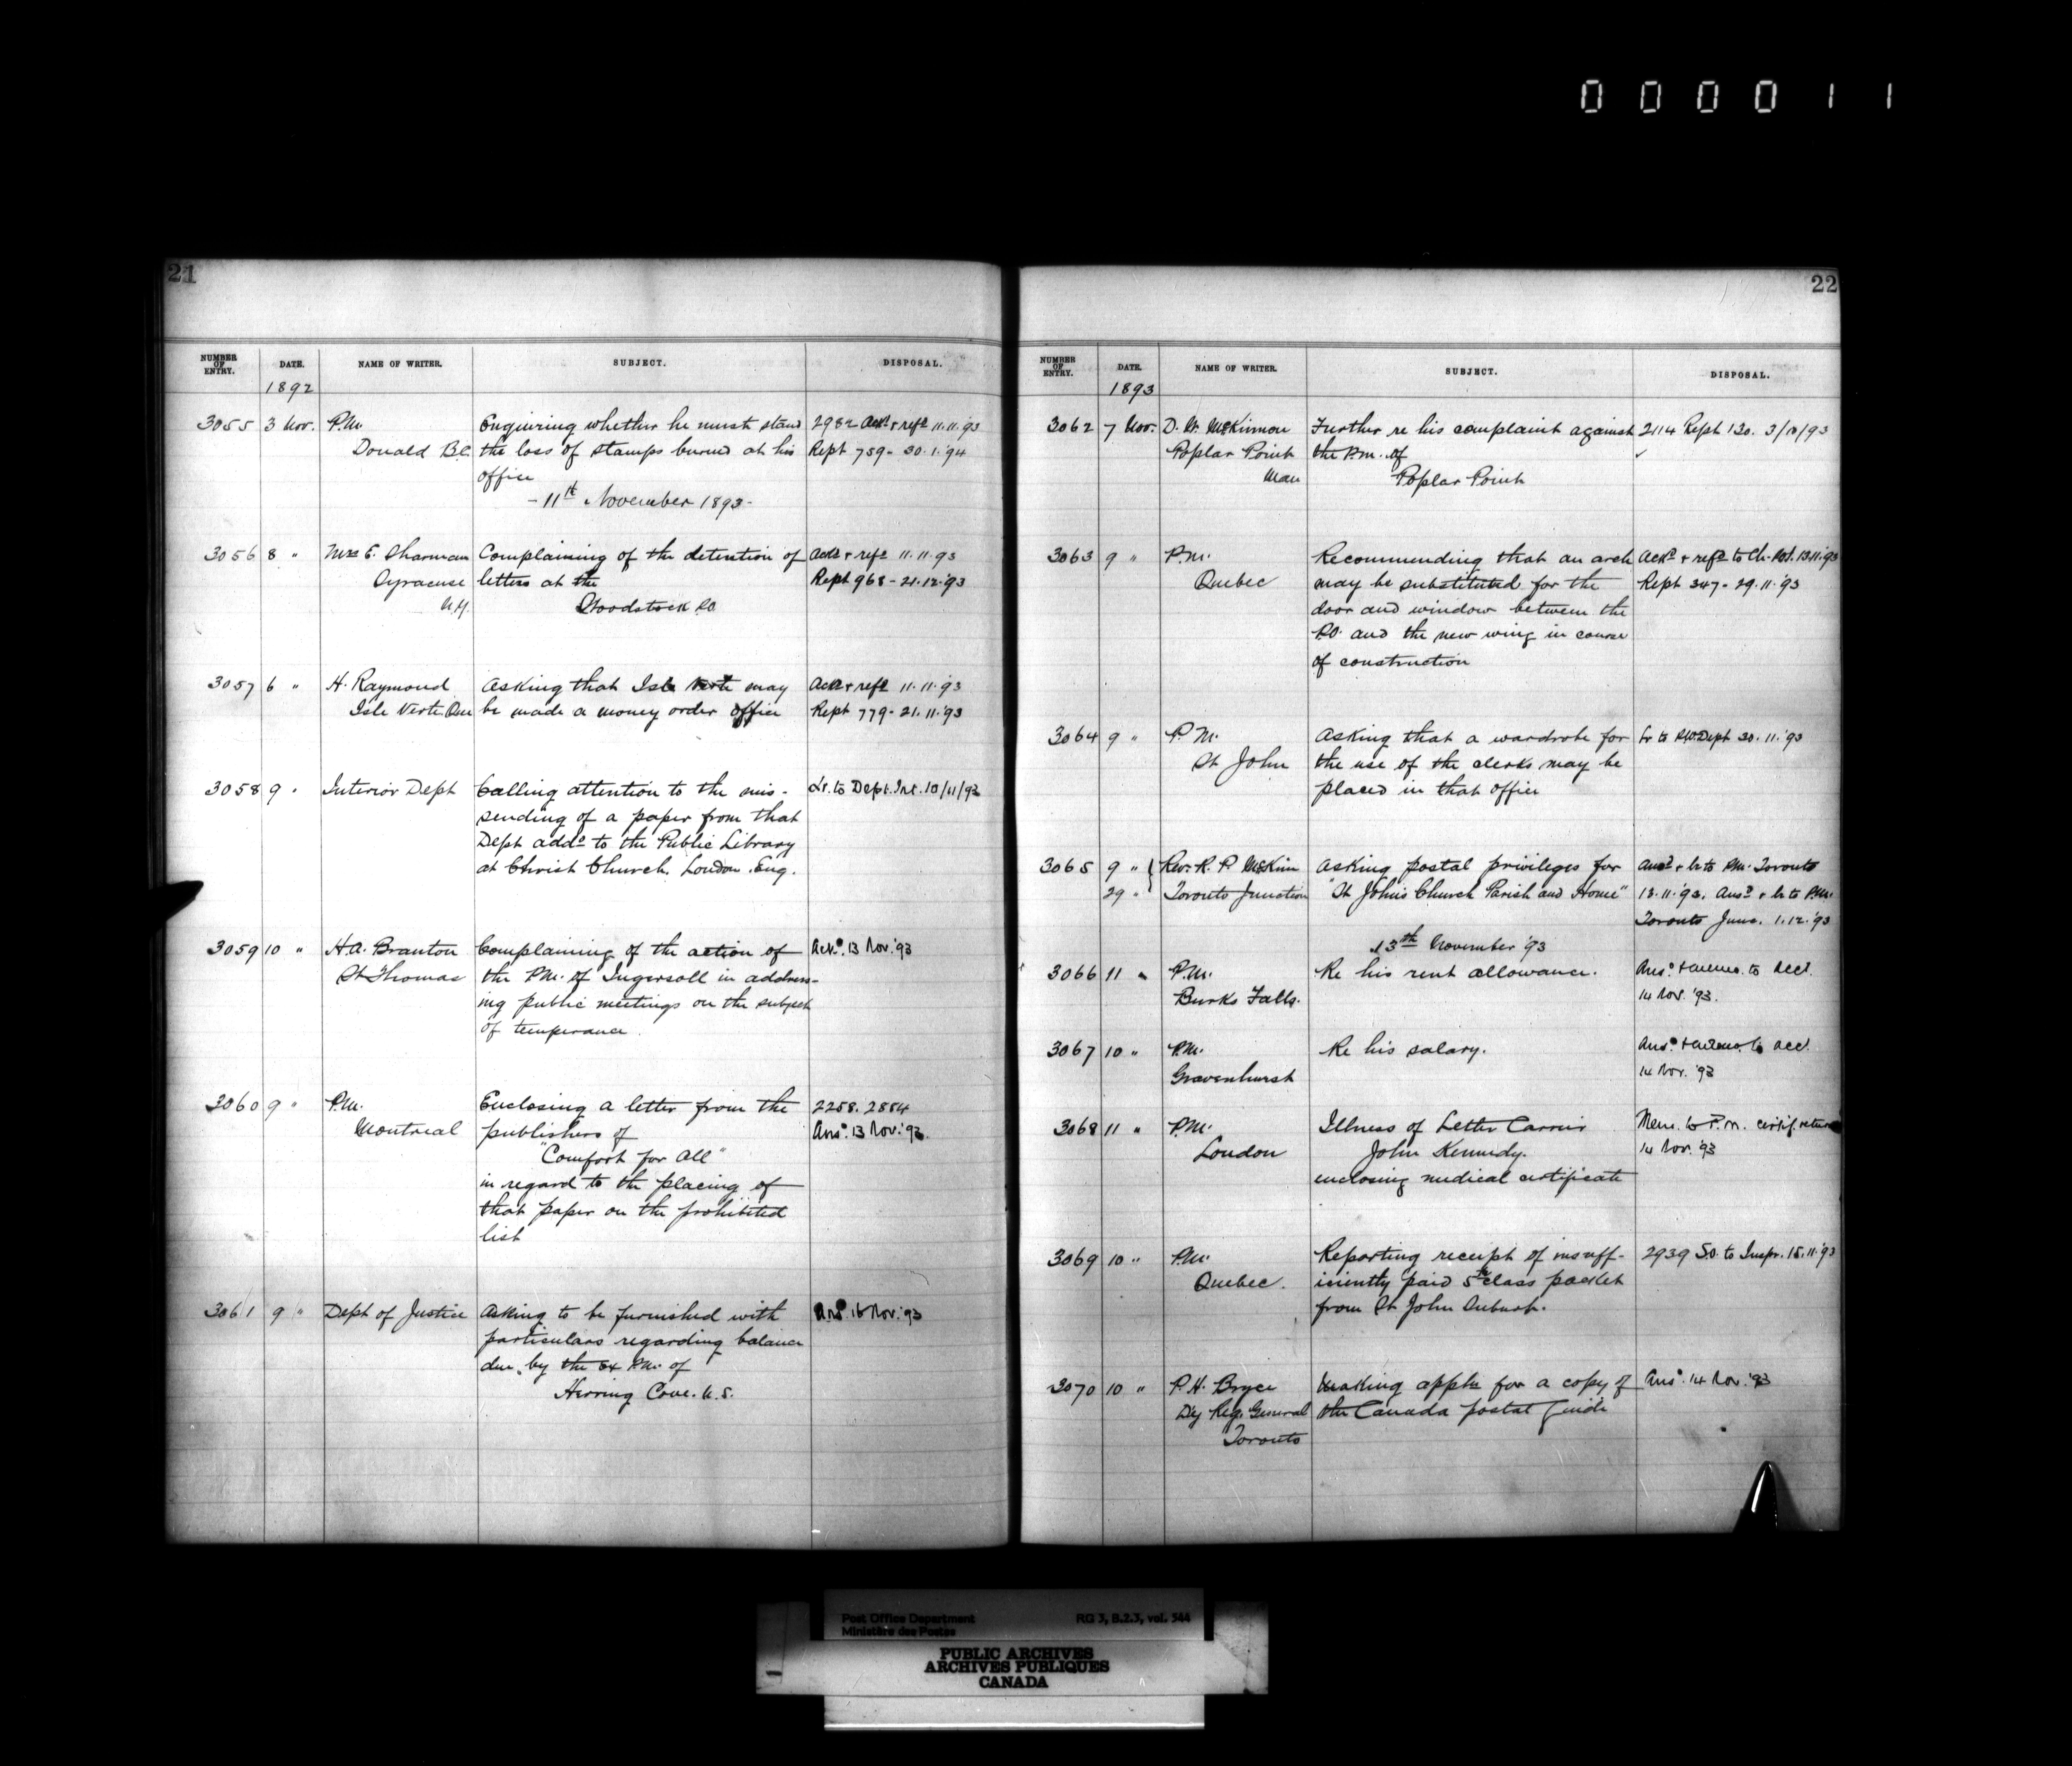 000011
21
NUMBER OF ENTRY. DATE. NAME OF WRITER. SUBJECT. DISPOSAL.
1892
3055 3 Nov. P.M. Enquiring whether he must stand 2982 Ackd & refd 11.11.'93
Donald B.C. the loss of stamps burned at his Rept 759- 30.1.'94
office
- 11th November 1893 -
3056 8 " Mrs E. Sharman Complaining of the detention of Ackd & refd 11.11.'93
Syracuse letters at the Rept 968 - 21.12.'93
N.Y. Woodstock P.O.
3057 6 " H. Raymond Asking that Isle Verte may Ackd & refd 11.11.'93
Isle Verte Que be made a money order office Rept 779- 21.11.'93
3058 9 " Interior Dept Calling attention to the mis- Lr. to Dept. Int. 10/11/93
sending of a paper from that
Dept addd to the Public Library
at Christ Church, London, Eng.
3059 10 " H.A. Branton Complaining of the action of Ackd. 13 Nov. '93
St Thomas the P.M. of Ingersoll in address-
ing public meetings on the subject
of temperance.
3060 9 " P.M. Enclosing a letter from the 2258. 2854
Montreal publishers of Ansd. 13 Nov. '93.
"Comfort for All"
in regard to the placing of
that paper on the prohibited
list
3061 9 " Dept of Justice Asking to be furnished with Ansd. 16 Nov. '93
particulars regarding balance
due by the ex P.M. of
Herring Cove. N.S.
22
NUMBER OF ENTRY. DATE. NAME OF WRITER. SUBJECT. DISPOSAL.
1893
3062 7 Nov. D. W. McKinnon Further re his complaint against 2114 Rept 130. 3/10/93
Poplar Point the P.M. of
Man Poplar Point
3063 9 " P.M. Recommending that an arch Ackd & refd to Ch. 13.11.'93
Quebec may be substituted for the Rept 347 - 29.11.'93
door and window between the
P.O. and the new wing in course
of construction
3064 9 " P.M. Asking that a wardrobe for Lr to P.W. Dept 30.11.'93
St John the use of the clerks may be
placed in that office
3065 9 " Rev. R. P McKim Asking postal privileges for Ansd & lr to P.M. Toronto
29 " Toronto Junction "St John's Church Parish and Home" 13.11.'93. Ansd & lr to P.M.
Toronto Junc. 1.12.'93
13th November '93
3066 11 " P.M. Re his rent allowance. Ansd. & memo. to Acct.
Burks Falls. 14 Nov. '93.
3067 10 " P.M. Re his salary. Ansd. & memo. to Acct.
Gravenhurst 14 Nov. '93
3068 11 " P.M. Illness of Letter Carrier Mem. to P.M. certif. return
London John Kennedy. 14 Nov. '93
enclosing medical certificate
3069 10 " P.M. Reporting receipt of insuff- 2939 S.O. to Inspr. 15.11.'93
Quebec. iciently paid 5th class packet
from St John Suburb.
3070 10 " P.H. Bryce Making appln for a copy of Ansd. 14 Nov. '93
Dy Reg. General the Canada postal Guide
Toronto
Post Office Department RG 3, B.2.3, vol. 544
Ministère des Postes
PUBLIC ARCHIVES
ARCHIVES PUBLIQUES
CANADA